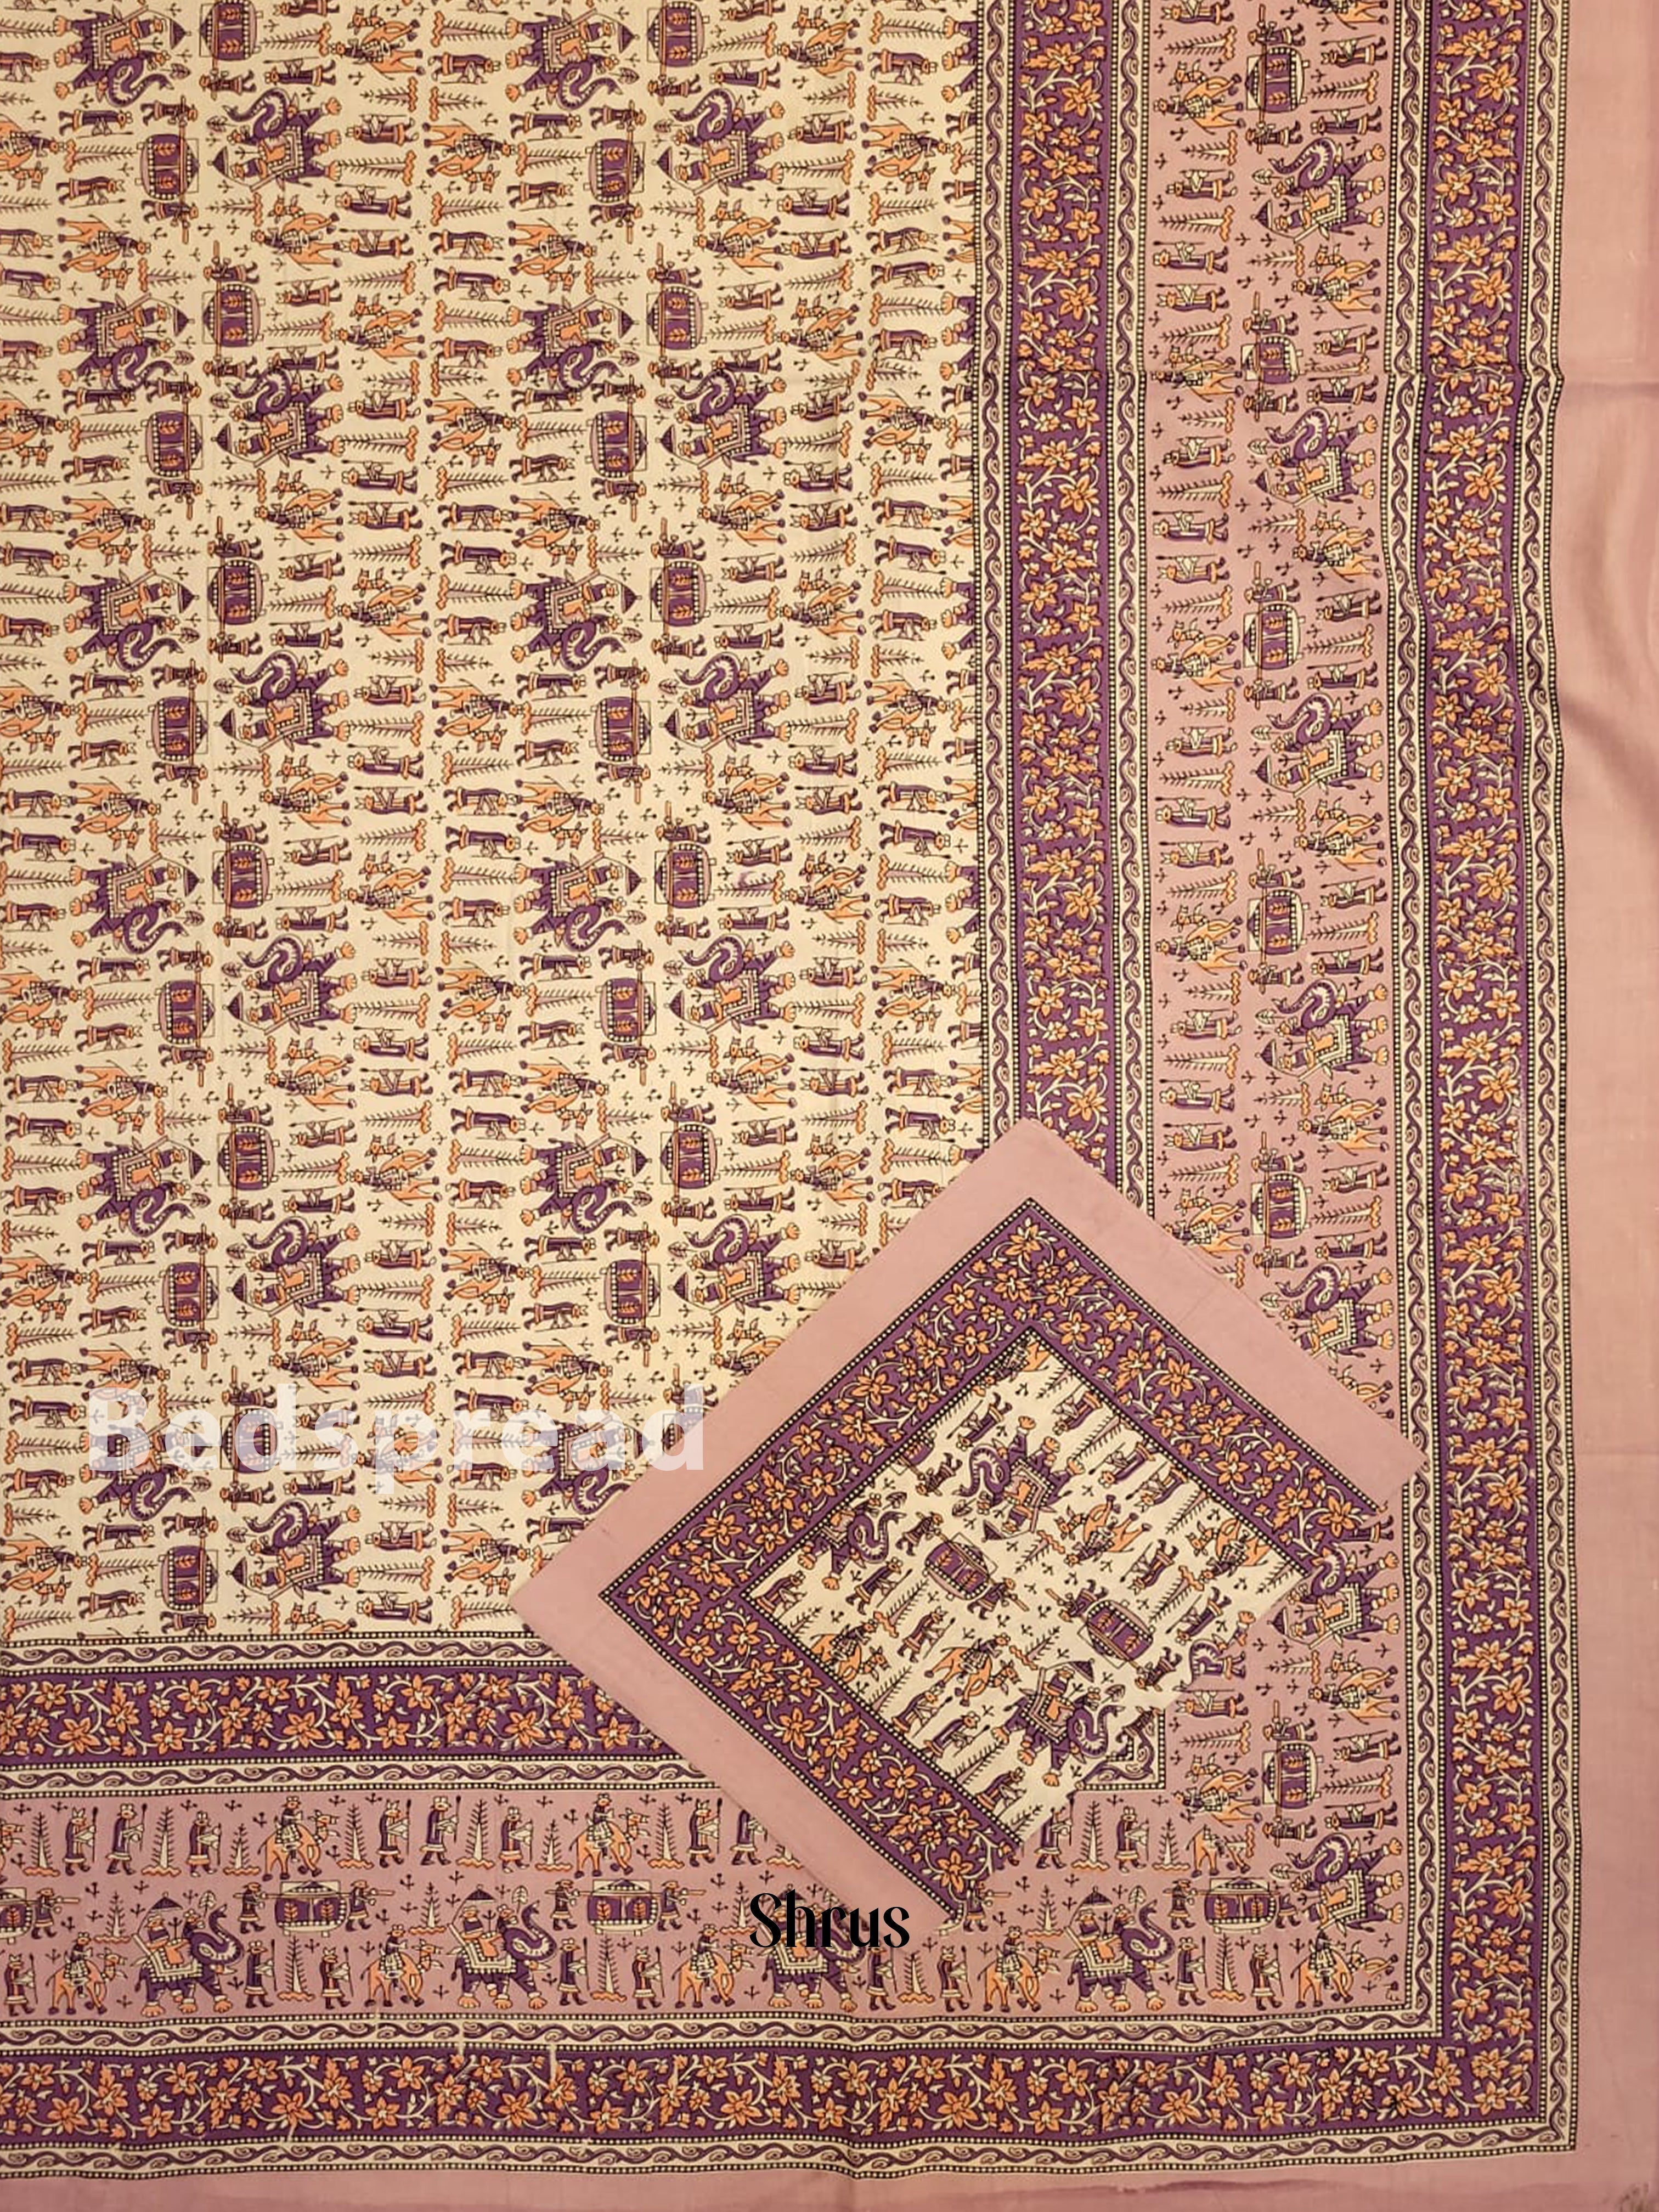 Bedspread
Shrus